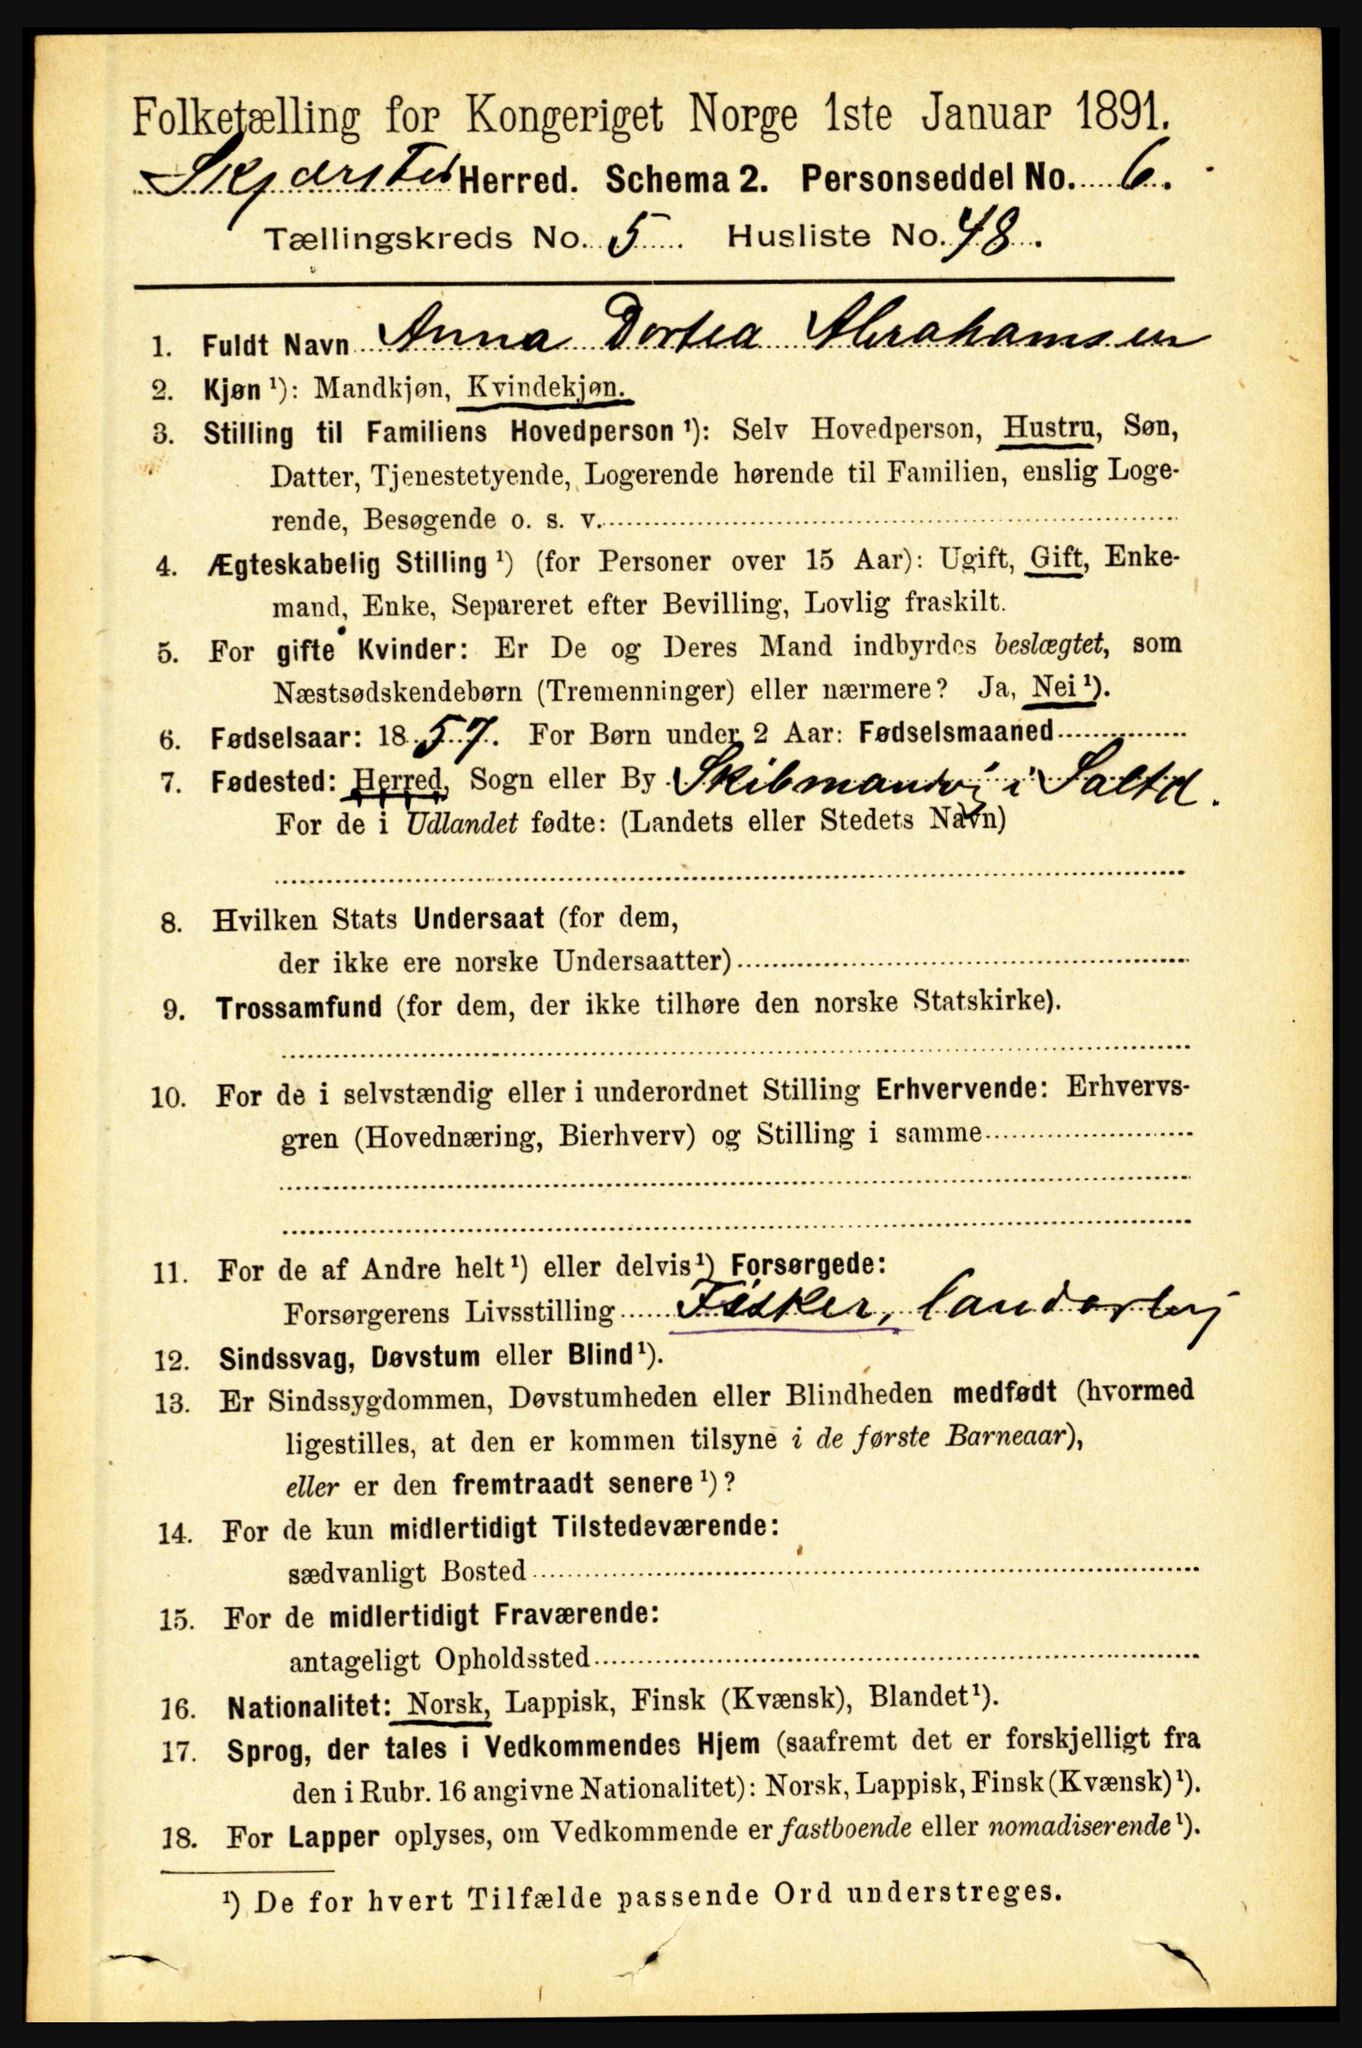 Folketælling for Kongeriget Norge 1ste Januar 1891.
Skjerstad Herred. Schema 2. Personseddel No. 6.
Tællingskreds No. 5. Husliste No. 48.
1. Fuldt Navn Anna Dortea Abrahamsen
2. Kjøn ¹): Mandkjøn, Kvindekjøn.
3. Stilling til Familiens Hovedperson ¹): Selv Hovedperson, Hustru, Søn,
Datter, Tjenestetyende, Logerende hørende til Familien, enslig Loge-
rende, Besøgende o. s. v.
4. Ægteskabelig Stilling ¹) (for Personer over 15 Aar): Ugift, Gift, Enke-
mand, Enke, Separeret efter Bevilling, Lovlig fraskilt.
5. For gifte Kvinder: Er De og Deres Mand indbyrdes beslægtet, som
Næstsødskendebørn (Tremenninger) eller nærmere? Ja, Nei ¹).
6. Fødselsaar: 1857. For Børn under 2 Aar: Fødselsmaaned
7. Fødested: Herred, Sogn eller By i Saltd.
For de i Udlandet fødte: (Landets eller Stedets Navn)
8. Hvilken Stats Undersaat (for dem,
der ikke ere norske Undersaatter)
9. Trossamfund (for dem, der ikke tilhøre den norske Statskirke).
10. For de i selvstændig eller i underordnet Stilling Erhvervende: Erhvervs-
gren (Hovednæring, Bierhverv) og Stilling i samme
11. For de af Andre helt ¹) eller delvis ¹) Forsørgede:
Forsørgerens Livsstilling Fisker,
12. Sindssvag, Døvstum eller Blind ¹).
13. Er Sindssygdommen, Døvstumheden eller Blindheden medfødt (hvormed
ligestilles, at den er kommen tilsyne i de første Barneaar),
eller er den fremtraadt senere ¹)?
14. For de kun midlertidigt Tilstedeværende:
sædvanligt Bosted
15. For de midlertidigt Fraværende:
antageligt Opholdssted
16. Nationalitet: Norsk, Lappisk, Finsk (Kvænsk), Blandet ¹).
17. Sprog, der tales i Vedkommendes Hjem (saafremt det er forskjelligt fra
den i Rubr. 16 angivne Nationalitet): Norsk, Lappisk, Finsk (Kvænsk) ¹).
18. For Lapper oplyses, om Vedkommende er fastboende eller nomadiserende ¹).
¹) De for hvert Tilfælde passende Ord understreges.